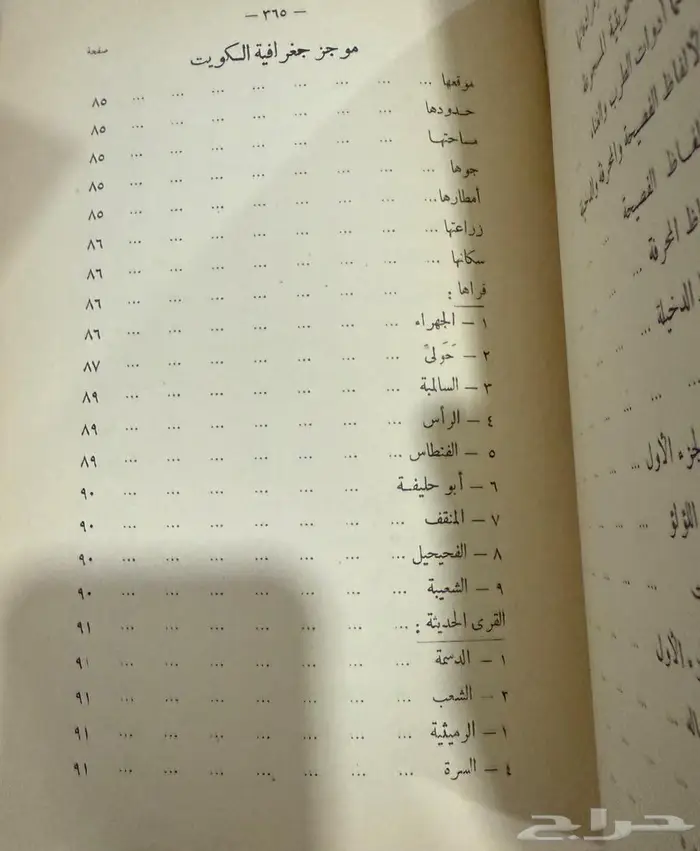 — ٣٦٥ —
موجز جغرافية الكويت
صفحة
موقعها ... ... ... ... ... ... ... ٨٥
حدودها ... ... ... ... ... ... ٨٥
مساحتها ... ... ... ... ... ... ٨٥
جوها ... ... ... ... ... ... ... ٨٥
أمطارها ... ... ... ... ... ... ... ٨٥
زراعتها ... ... ... ... ... ... ... ٨٦
سكانها ... ... ... ... ... ... ... ٨٦
قراها : ... ... ... ... ... ... ٨٦
١ — الجهراء ... ... ... ... ... ... ... ٨٦
٢ — حَوَلى ... ... ... ... ... ... ٨٧
٣ — السالمية ... ... ... ... ... ... ... ٨٩
٤ — الرأس ... ... ... ... ... ... ... ٨٩
٥ — الفنطاس ... ... ... ... ... ... ... ٨٩
٦ — أبو حليفة ... ... ... ... ... ... ٩٠
٧ — المنقف ... ... ... ... ... ... ... ٩٠
٨ — الفحيحيل ... ... ... ... ... ... ... ٩٠
٩ — الشعيبة ... ... ... ... ... ... ... ٩٠
القرى الحديثة : ... ... ... ... ... ... ... ٩١
١ — الدسمة ... ... ... ... ... ... ... ٩١
٢ — الشعب ... ... ... ... ... ... ... ٩١
١ — الرميثية ... ... ... ... ... ... ... ٩١
٤ — السرة ... ... ... ... ... ... ... ٩١
أدوات الطرب والغناء
الألفاظ الفصيحة والمحرفة والدخيلة
الفصيحة
المحرفة ...
الدخيلة ...
الأول ...
اللؤلؤ ...
الأول
حراج